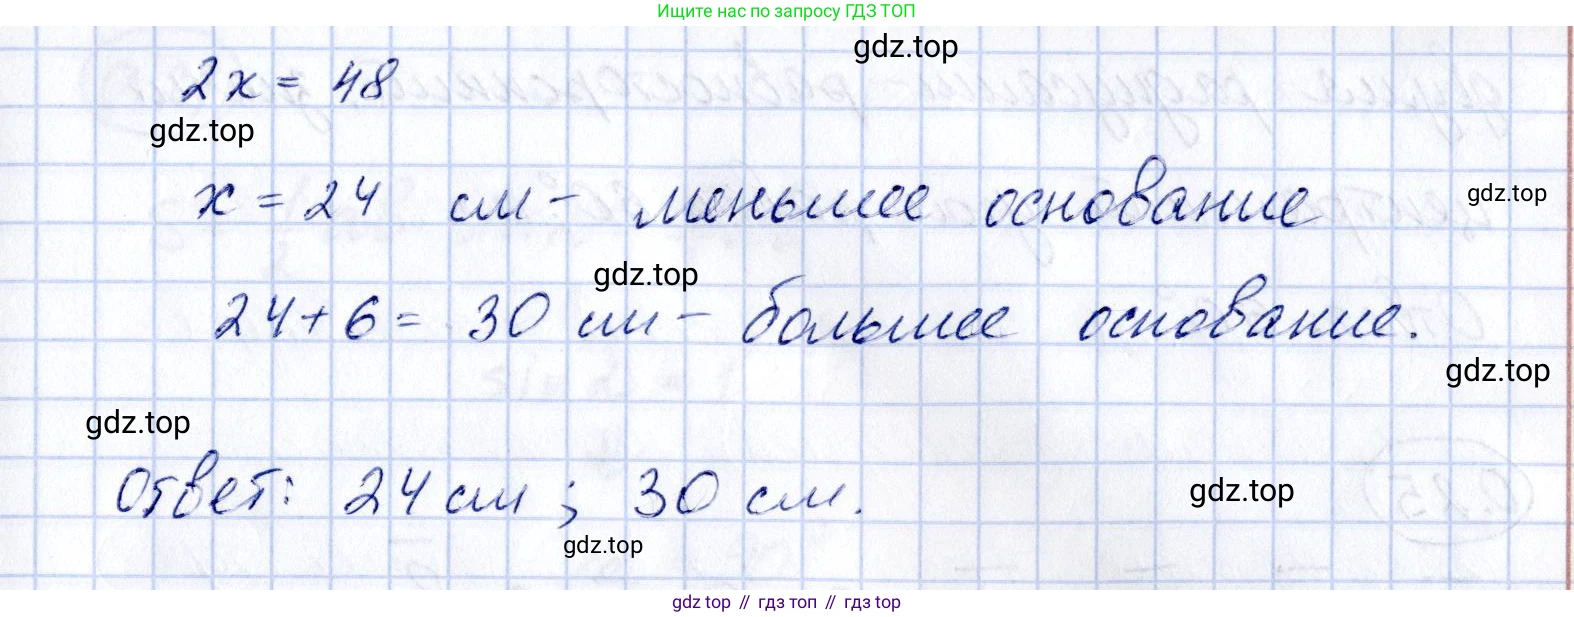 Ищите нас по запросу ГДЗ ТОП
gdz.top
2x = 48
gdz.top
x = 24 см - меньшее основание
gdz.top
gdz.top
24 + 6 = 30 см - большее основание.
gdz.top
gdz.top
Ответ: 24 см ; 30 см.
gdz.top
gdz.top
gdz top // гдз топ // гдз top